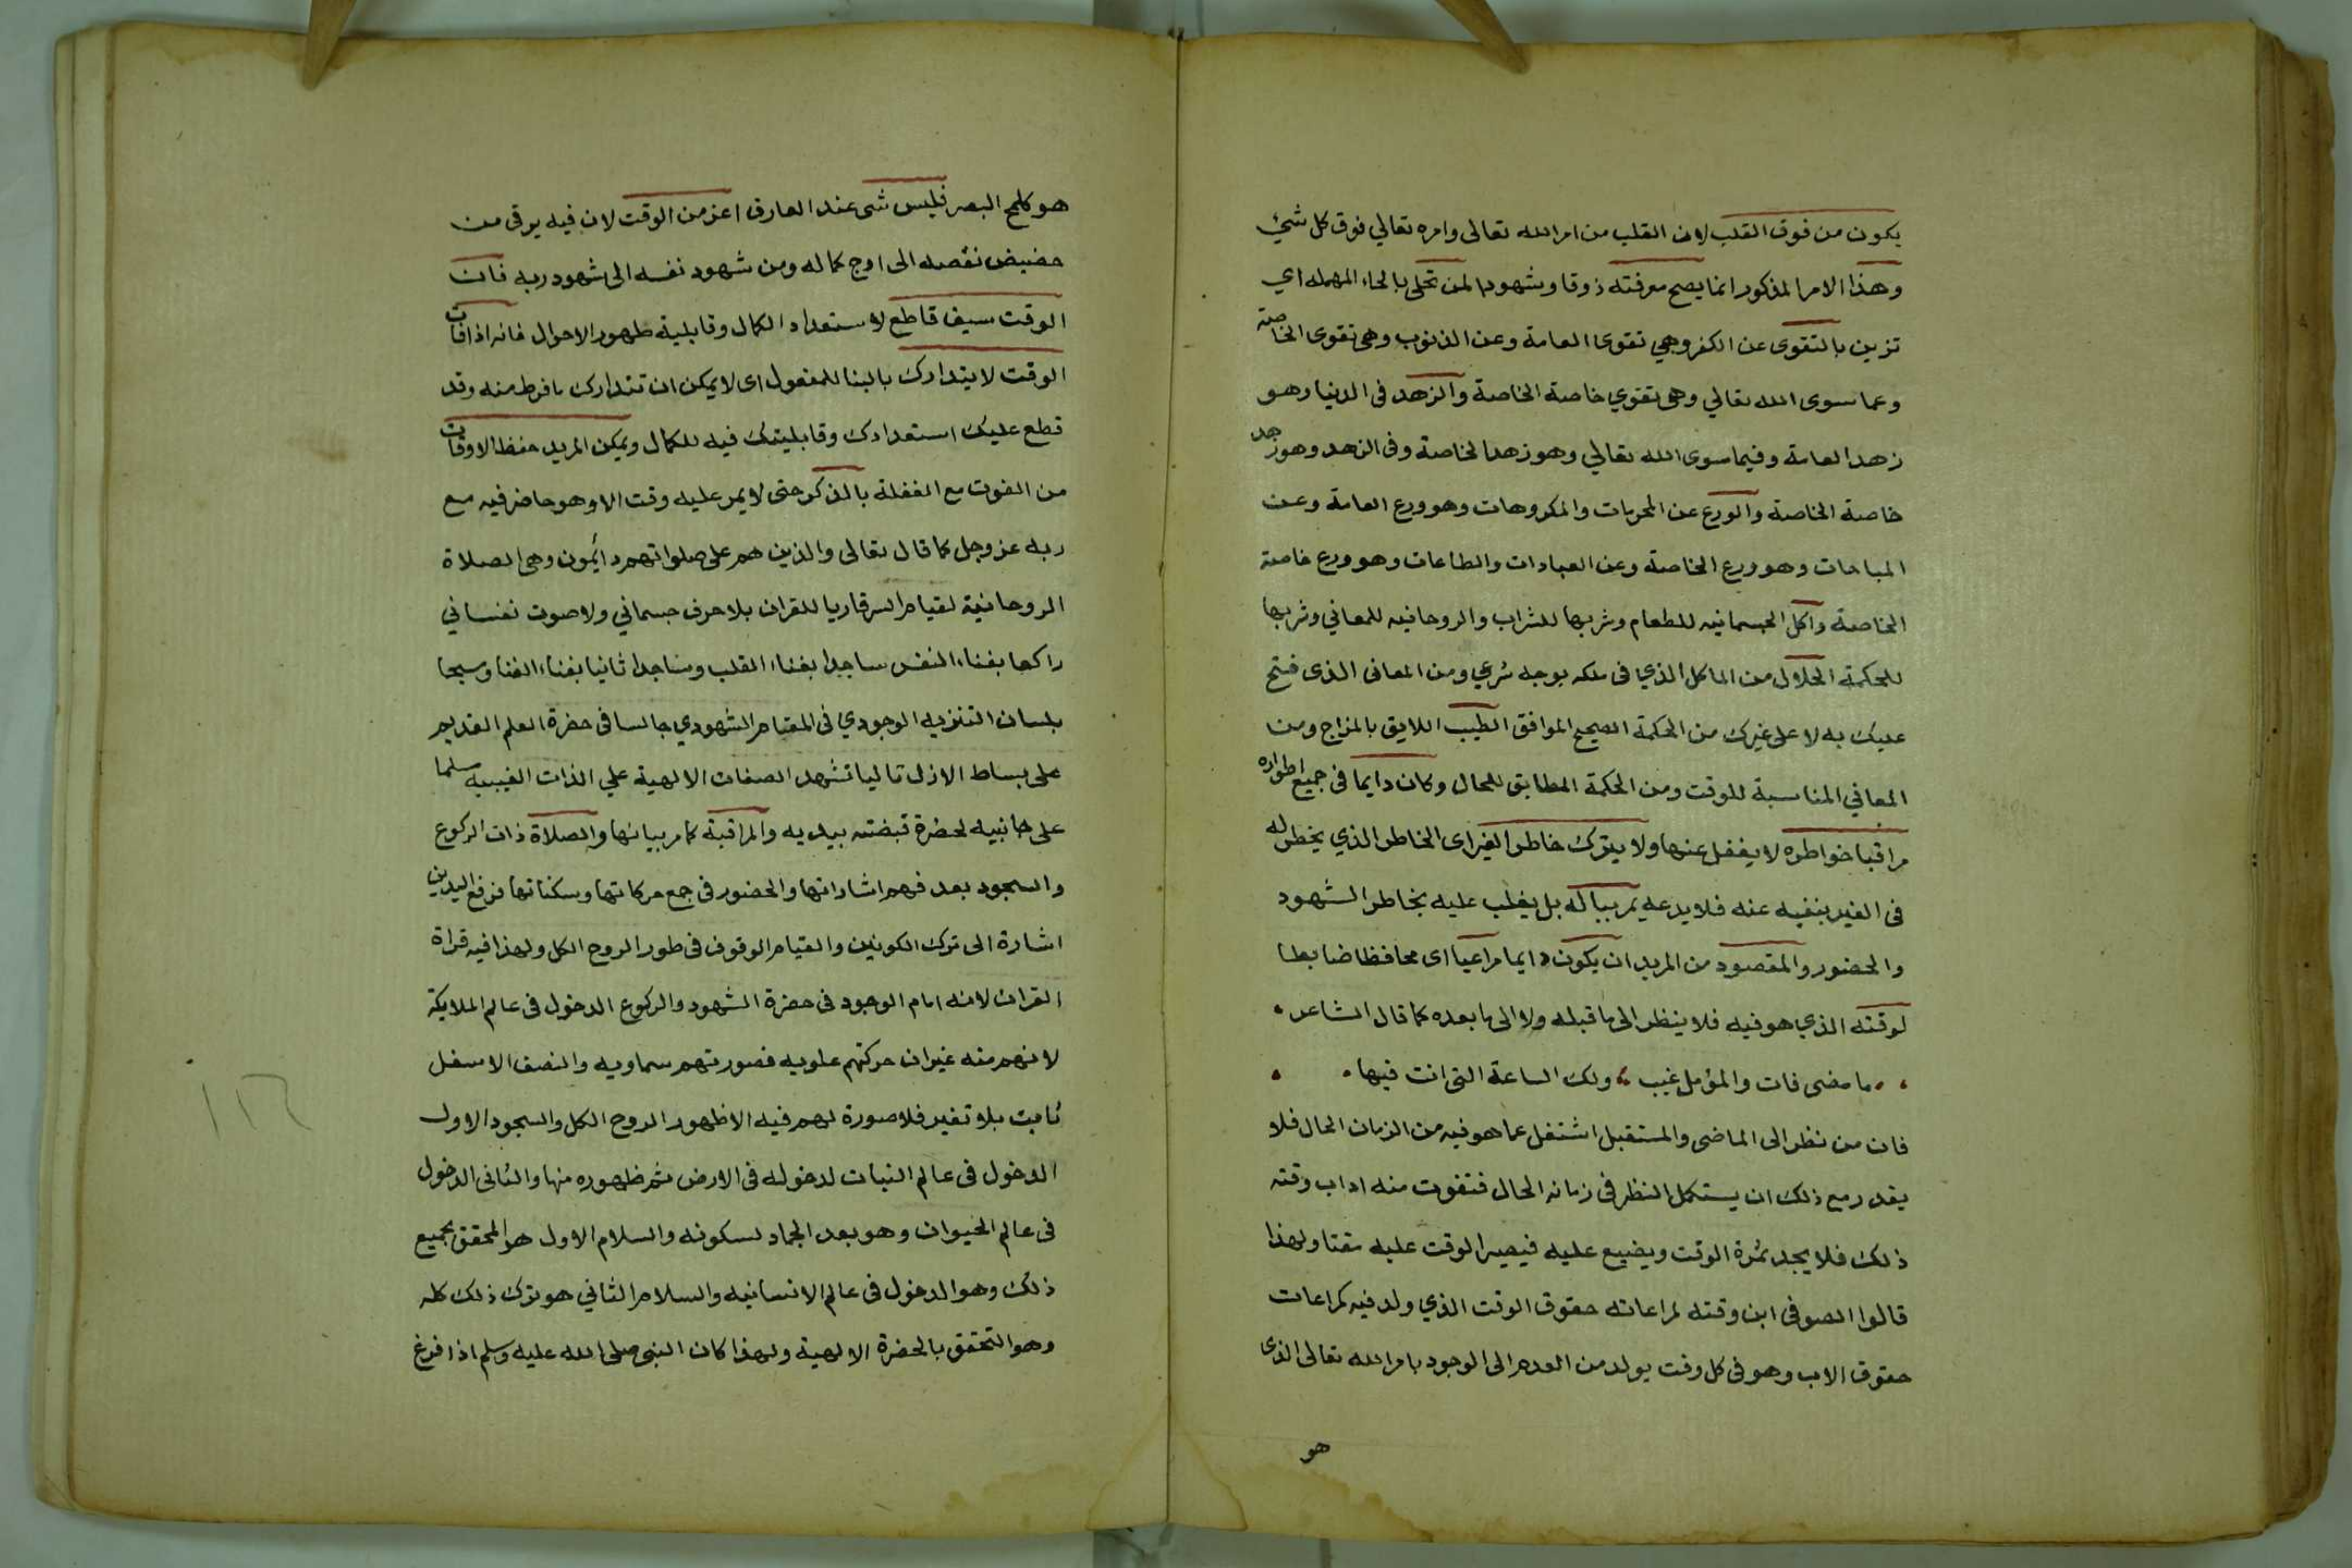 يكون من فوق القلب لان القلب من امر الله تعالى وامره تعالي فوق كل شئ
وهذا الامر المذكور انما يصح معرفته ذوقا وشهودا لمن تحلى بالحاء المهمله اي
تزين بالتقوى عن الكفر وهي تقوى العامة وعن الذنوب وهي تقوى الخاصة
وعما سوى الله تعالي وهي تقوي خاصة الخاصة والزهد فى الدنيا وهو
زهد العامة وفيما سوى الله تعالي وهو زهد الخاصة وفى الزهد وهو زهد
خاصة الخاصة والورع عن المحرمات والمكروهات وهو ورع العامة وعن
المباحات وهو ورع الخاصة وعن العبادات والطاعات وهو ورع خاصة
الخاصة واكل الجسمانيه للطعام وشربها للشراب والروحانيه للمعاني وشربها
للحكمة الحلال من الماكل الذي فى ملكه بوجه شرعي ومن المعانى الذى فتح
عليك به لا على غيرك من الحكمة الصحيح الموافق الطيب اللايق بالمزاج ومن
المعاني المناسبة للوقت ومن الحكمة المطابق للحال وكان دايما فى جميع اطواره
مراقبا خواطره لا يغفل عنها ولا يترك خاطر الغير اى الخاطر الذي يخطر له
فى الغير بنفيه عنه فلا يدعه يمر بباله بل يغلب عليه بخاطر الشهود
والحضور والمقصود من المريد ان يكون دايما مراعيا اى محافظا ضابطا
لوقته الذي هو فيه فلا ينظر الى ما قبله ولا الى ما بعده كما قال الشاعر
ما مضى فات والمؤمل غيب ولك الساعة التى انت فيها
فان من نظر الى الماضى والمستقبل اشتغل عما هو فيه من الزمان الحال فلا
يقدر مع ذلك ان يستكمل النظر فى زمانه الحال فتفوت منه اداب وقته
ذلك فلا يجد ثمرة الوقت ويضيع عليه فيصير الوقت عليه مقتا ولهذا
قالوا الصوفى ابن وقته لمراعاته حقوق الوقت الذي ولد فيه كمراعات
حقوق الاب وهو فى كل وقت يولد من العدم الى الوجود بامر الله تعالى الذى
هو
هو كلمح البصر فليس شى عند العارف اعز من الوقت لان فيه يرقى من
حضيض نقصه الى اوج كماله ومن شهود نفسه الى شهود ربه فان
الوقت سيف قاطع لاستعداد الكمال وقابلية ظهور الاحوال فانه اذا فات
الوقت لا يتدارك بالبنا للمفعول اى لا يمكن ان تتدارك ما فرط منه وقد
قطع عليك استعدادك وقابليتك فيه للكمال ويمكن المريد حفظ الاوقات
من الفوت مع الغفلة بالذكر حتى لا يمر عليه وقت الا وهو حاضر فيه مع
ربه عز وجل كما قال تعالى والذين هم على صلواتهم دائمون وهى الصلاة
الروحانية لقيام السر قاريا للقران بلا حرف جسماني ولا صوت نفساني
راكعا بفناء النفس ساجدا بفناء القلب وساجدا ثانيا بفناء الفنا وسبحا
بلسان التنزيه الوجودي فى المقام الشهودي جالسا فى حضرة العلم القديم
على بساط الازل تاليا تشهد الصفات الالهية علي الذات الغيبيه سلما
على جانبيه لحضرة قبضته بيديه والمراقبة كما مر بيانها والصلاة ذات الركوع
والسجود بعد فهم اشاراتها والحضور فى جمع حركاتها وسكناتها فرفع اليدين
اشارة الى ترك الكونين والقيام الوقوف فى طور الروح الكل ولهذا فيه قراة
القران لانه امام الوجود فى حضرة الشهود والركوع الدخول فى عالم الملايكة
لانهم منه غير ان حركتهم علويه فصورتهم سماويه والنصف الاسفل
ثابت بلا تغير فلا صورة لهم فيه الا ظهور الروح الكل والسجود الاول
الدخول فى عالم النبات لدخوله فى الارض ثم ظهوره منها والثانى الدخول
فى عالم الحيوان وهو بعد الجماد لسكونه والسلام الاول هو المحقق بجميع
ذلك وهو الدخول فى عالم الانسانيه والسلام الثاني هو ترك ذلك كله
وهو التحقق بالحضرة الالهية ولهذا كان النبى صلى الله عليه وسلم اذا فرغ
١١٦